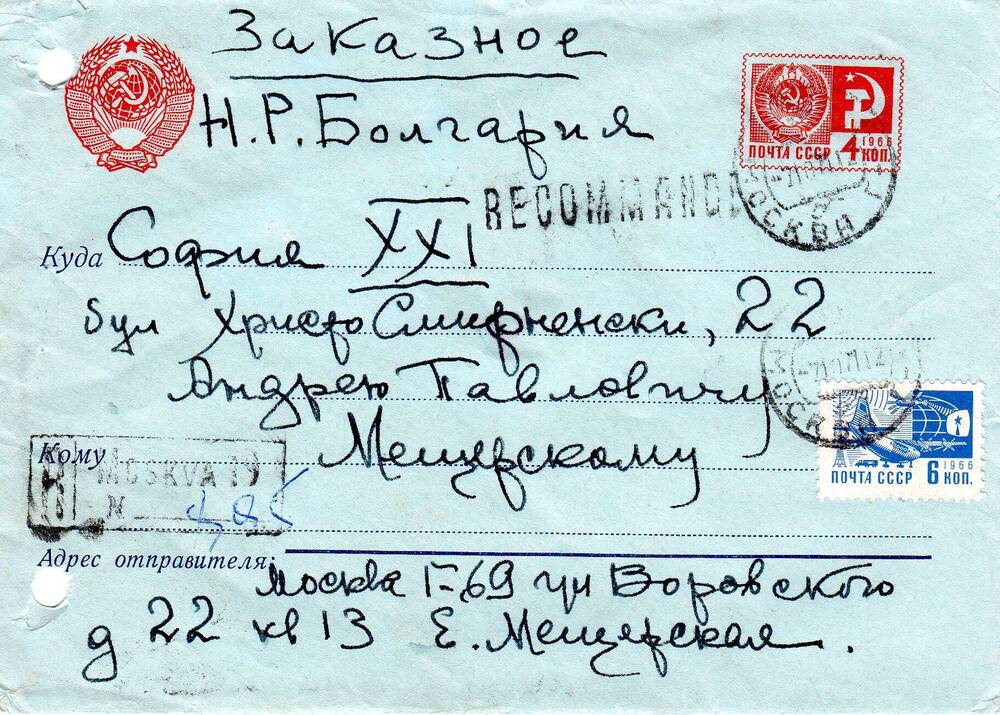 Заказное
Н.Р.Болгария
ПОЧТА СССР 4 1966 КОП.
RECOMMAND
МОСКВА
Куда София XXI
бул Христо Смирненски, 22
Андрею Павловичу
МОСКВА
Кому Мещерскому
ПОЧТА СССР 6 1966 КОП.
R MOSKVA 19
N 485
Адрес отправителя:
Москва Г-69 ул Воровского
д 22 кв 13 Е. Мещерская.